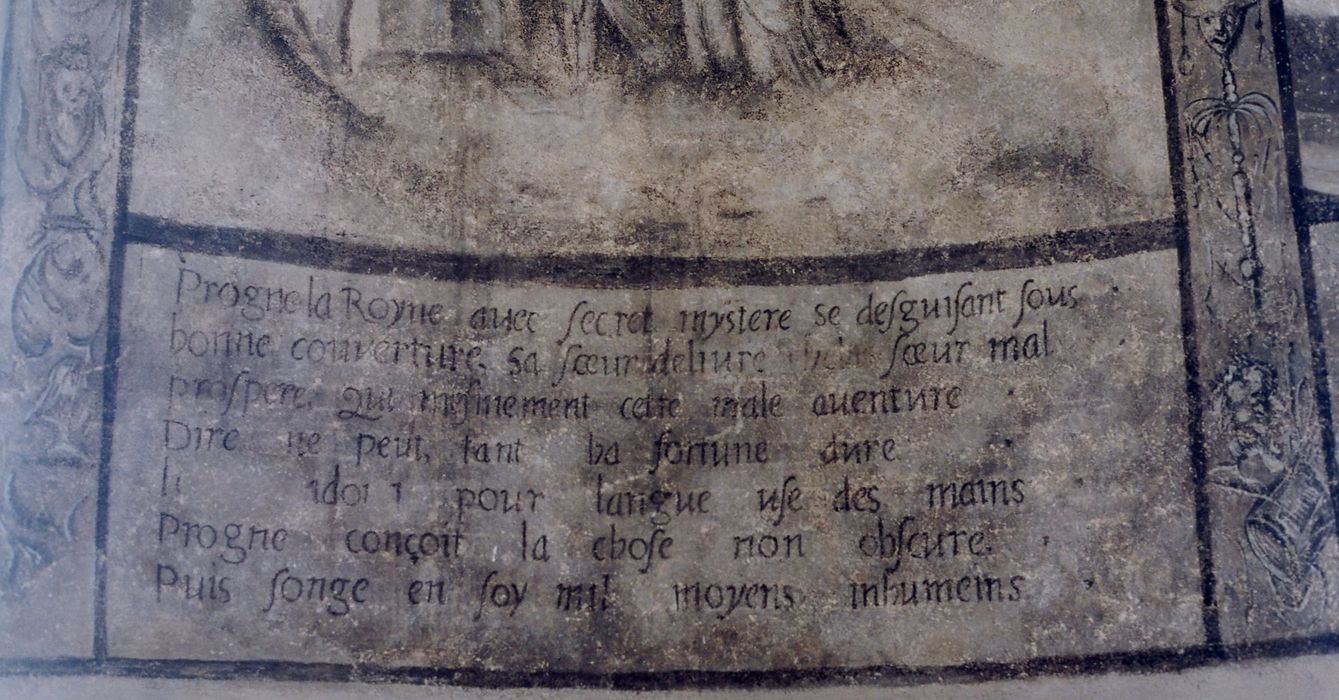 Progne la Royne avec secret mystere se desguisant sous
bonne couverture, sa sœur delivre sœur mal
prospere, qui cette male aventure
Dire ne peut, tant ha fortune dure
pour langue use des mains
Progne conçoit la chose non obscure.
Puis songe en soy mil moyens inhumeins